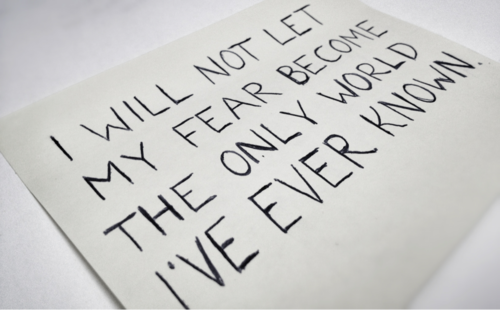 I WILL NOT LET
MY FEAR BECOME
THE ONLY WORLD
I'VE EVER KNOWN.